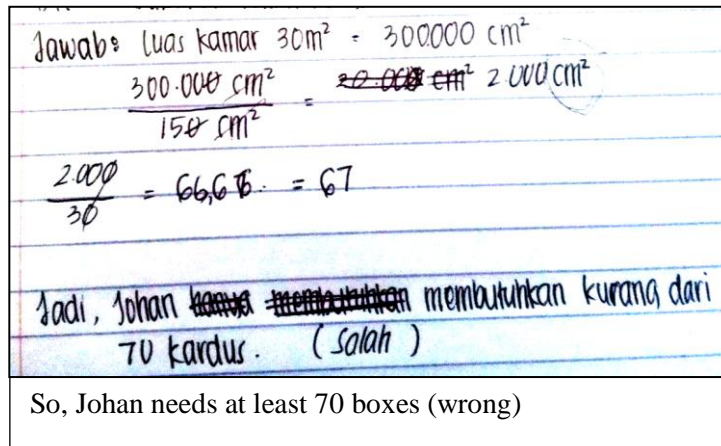 Jawab: luas kamar 30m² = 300000 cm²
300.000 cm² / 150 cm² = 2.000 cm²
2.000 / 30 = 66,66 = 67
Jadi, Johan membutuhkan kurang dari
70 kardus. (salah)
So, Johan needs at least 70 boxes (wrong)